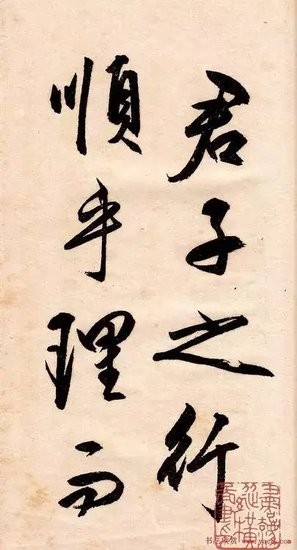 君子之行
順乎理而